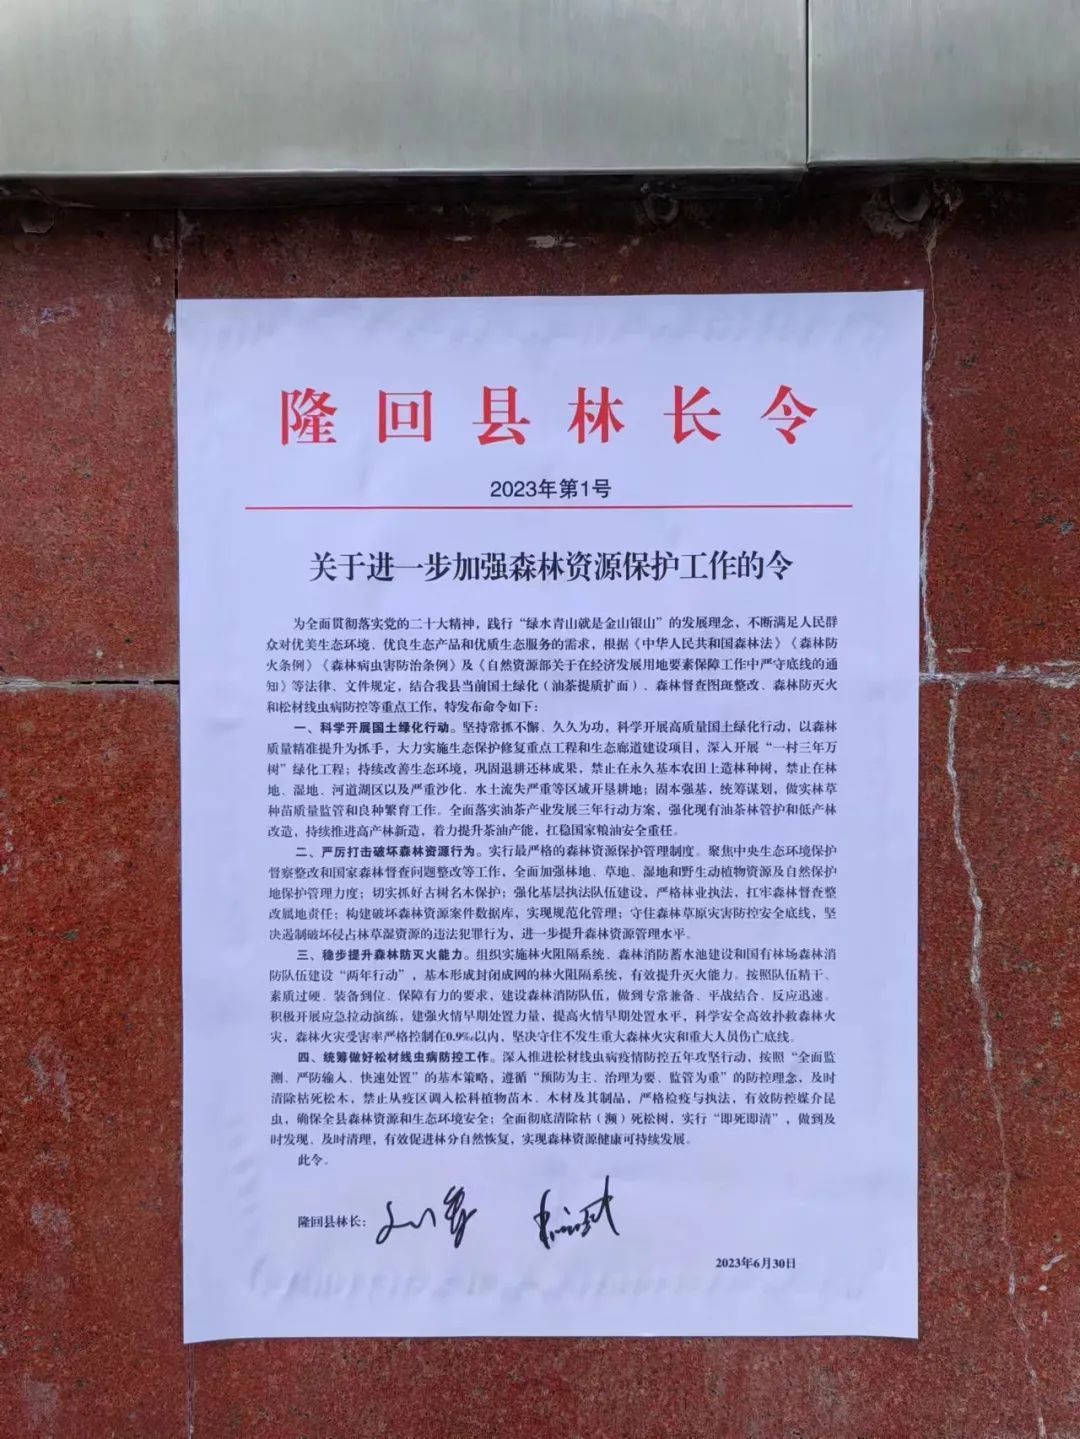 隆回县林长令
2023年第1号
关于进一步加强森林资源保护工作的令
为全面贯彻落实党的二十大精神，践行“绿水青山就是金山银山”的发展理念，不断满足人民群
众对优美生态环境、优良生态产品和优质生态服务的需求，根据《中华人民共和国森林法》《森林防
火条例》《森林病虫害防治条例》及《自然资源部关于在经济发展用地要素保障工作中严守底线的通
知》等法律、文件规定，结合我县当前国土绿化（油茶提质扩面）、森林督查图斑整改、森林防灭火
和松材线虫病防控等重点工作，特发布命令如下：
一、科学开展国土绿化行动。坚持常抓不懈、久久为功，科学开展高质量国土绿化行动，以森林
质量精准提升为抓手，大力实施生态保护修复重点工程和生态廊道建设项目，深入开展“一村三年万
树”绿化工程；持续改善生态环境，巩固退耕还林成果，禁止在永久基本农田上造林种树，禁止在林
地、湿地、河道湖区以及严重沙化、水土流失严重等区域开垦耕地；固本强基，统筹谋划，做实林草
种苗质量监管和良种繁育工作。全面落实油茶产业发展三年行动方案，强化现有油茶林管护和低产林
改造，持续推进高产林新造，着力提升茶油产能，扛稳国家粮油安全重任。
二、严厉打击破坏森林资源行为。实行最严格的森林资源保护管理制度。聚焦中央生态环境保护
督察整改和国家森林督查问题整改等工作，全面加强林地、草地、湿地和野生动植物资源及自然保护
地保护管理力度；切实抓好古树名木保护；强化基层执法队伍建设，严格林业执法，扛牢森林督查整
改属地责任；构建破坏森林资源案件数据库，实现规范化管理；守住森林草原灾害防控安全底线，坚
决遏制破坏侵占林草湿资源的违法犯罪行为，进一步提升森林资源管理水平。
三、稳步提升森林防灭火能力。组织实施林火阻隔系统、森林消防蓄水池建设和国有林场森林消
防队伍建设“两年行动”，基本形成封闭成网的林火阻隔系统，有效提升灭火能力。按照队伍精干、
素质过硬、装备到位、保障有力的要求，建设森林消防队伍，做到专常兼备、平战结合、反应迅速。
积极开展应急拉动演练，建强火情早期处置力量，提高火情早期处置水平，科学安全高效扑救森林火
灾，森林火灾受害率严格控制在0.9‰以内，坚决守住不发生重大森林火灾和重大人员伤亡底线。
四、统筹做好松材线虫病防控工作。深入推进松材线虫病疫情防控五年攻坚行动，按照“全面监
测、严防输入、快速处置”的基本策略，遵循“预防为主、治理为要、监管为重”的防控理念，及时
清除枯死松木，禁止从疫区调入松科植物苗木、木材及其制品，严格检疫与执法，有效防控媒介昆
虫，确保全县森林资源和生态环境安全；全面彻底清除枯（濒）死松树，实行“即死即清”，做到及
时发现、及时清理，有效促进林分自然恢复，实现森林资源健康可持续发展。
此令。
隆回县林长：
2023年6月30日